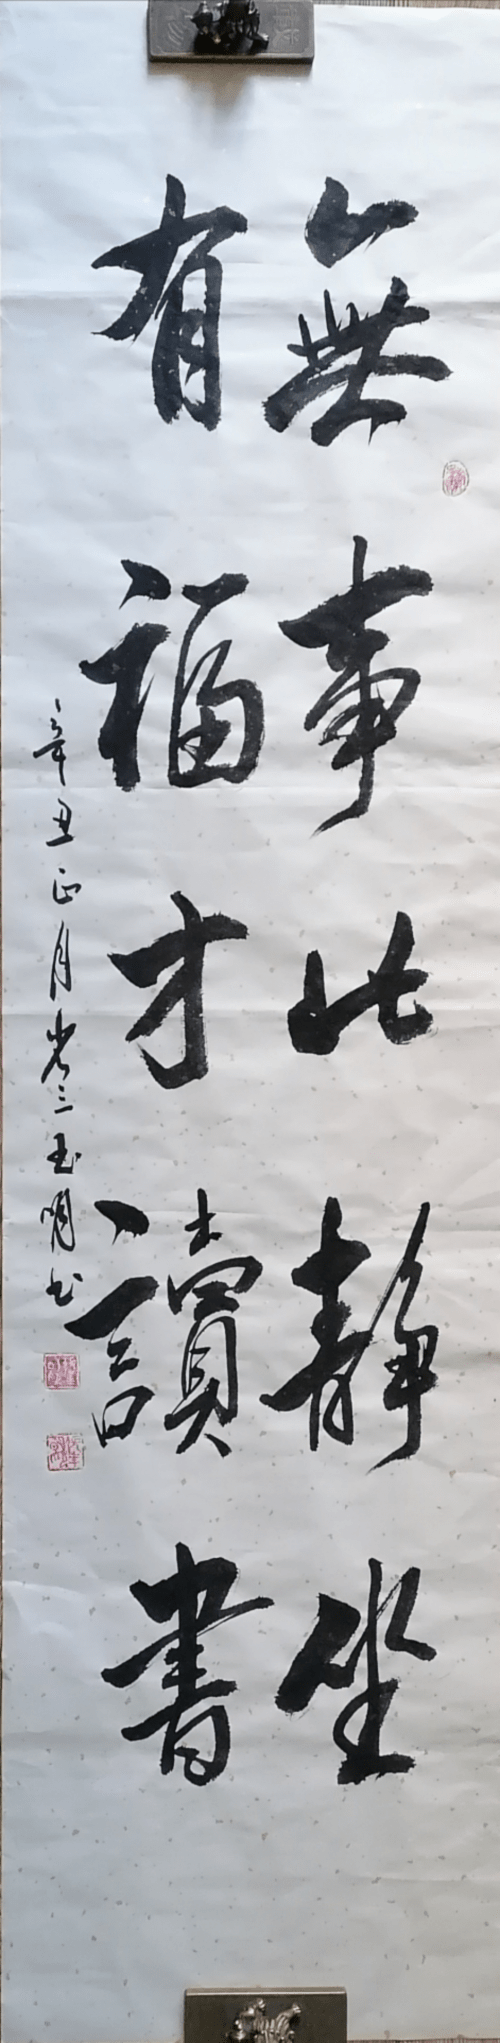 無事此靜坐
有福才讀書
辛丑正月三玉明书